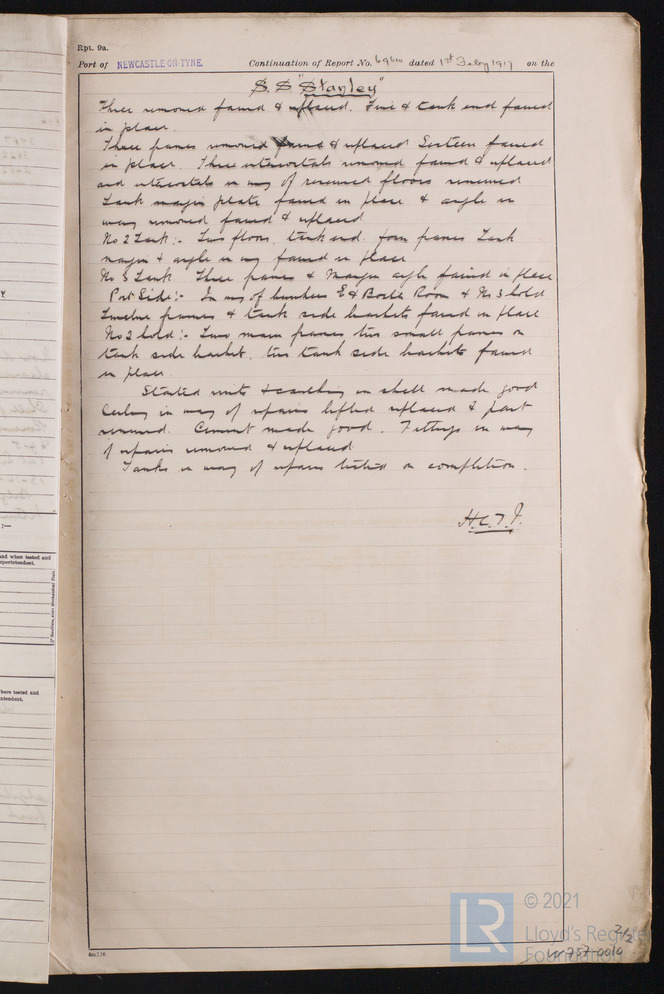 Rpt. 9a.
Port of NEWCASTLE-ON-TYNE. Continuation of Report No. dated 1st Feby 1917 on the
S.S. "Stanley"
Three removed faired & replaced. Five & tank end faired
in place.
Three frames removed faired & replaced Sixteen faired
in place. Three intercostals removed faired & replaced
and intercostals in way of renewed floors renewed
Tank margin plate faired in place & angle in
way removed faired & replaced
No 2 Tank :- Two floors, tank end, four frames Tank
margin & angle in way faired in place
No 3 Tank Three frames & Margin angle faired in place
Port Side :- In way of bunkers E & Boiler Room & No 3 hold
Twelve frames & tank side brackets faired in place
No 2 hold :- Two main frames two small frames on
tank side bracket, two tank side brackets faired
in place.
Started rivets & caulking in shell made good
Ceiling in way of repairs lifted replaced & part
renewed. Cement made good. Fittings in way
of repairs removed & replaced
Tanks in way of repairs tested on completion.
H.C.T.J.
© 2021
LR
Lloyd's Register
Foundation
2/2
W757-0010
said when tested and
superintendent.
where tested and